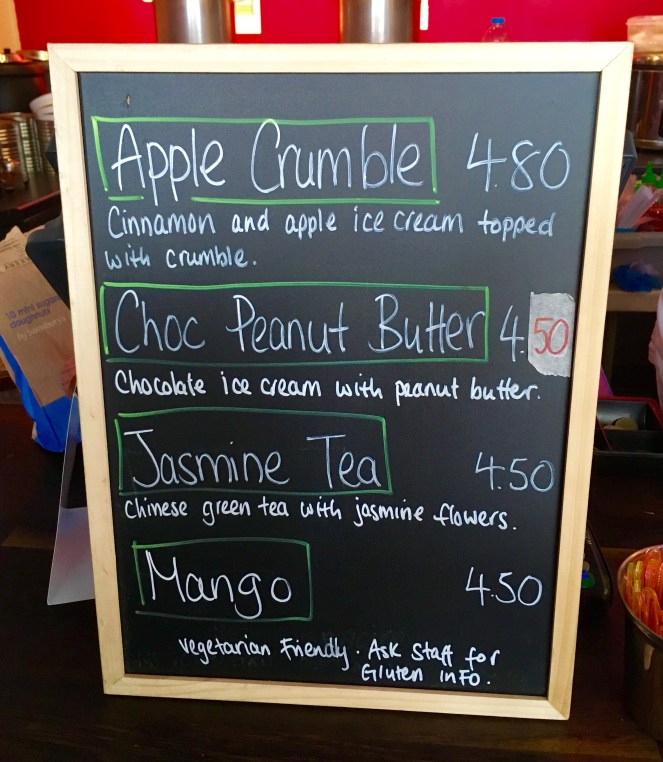 Apple Crumble 4.80
Cinnamon and apple ice cream topped
with crumble.
Choc Peanut Butter 4.50
Chocolate ice cream with peanut butter.
Jasmine Tea 4.50
Chinese green tea with jasmine flowers.
Mango 4.50
Vegetarian Friendly. Ask Staff for
Gluten info.
10 mini sugar
doughnuts